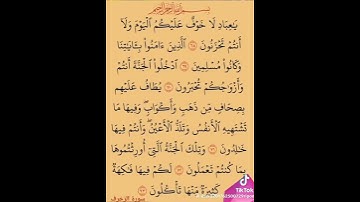 بسم الله الرحمن الرحيم
يَٰعِبَادِ لَا خَوْفٌ عَلَيْكُمُ ٱلْيَوْمَ وَلَآ
أَنتُمْ تَحْزَنُونَ ٦٨ ٱلَّذِينَ ءَامَنُوا۟ بِـَٔايَٰتِنَا
وَكَانُوا۟ مُسْلِمِينَ ٦٩ ٱدْخُلُوا۟ ٱلْجَنَّةَ أَنتُمْ
وَأَزْوَٰجُكُمْ تُحْبَرُونَ ٧٠ يُطَافُ عَلَيْهِم
بِصِحَافٍ مِّن ذَهَبٍ وَأَكْوَابٍ ۖ وَفِيهَا مَا
تَشْتَهِيهِ ٱلْأَنفُسُ وَتَلَذُّ ٱلْأَعْيُنُ ۖ وَأَنتُمْ فِيهَا
خَٰلِدُونَ ٧١ وَتِلْكَ ٱلْجَنَّةُ ٱلَّتِىٓ أُورِثْتُمُوهَا
بِمَا كُنتُمْ تَعْمَلُونَ ٧٢ لَكُمْ فِيهَا فَٰكِهَةٌ
كَثِيرَةٌ مِّنْهَا تَأْكُلُونَ ٧٣
سورة الزخرف
TikTok